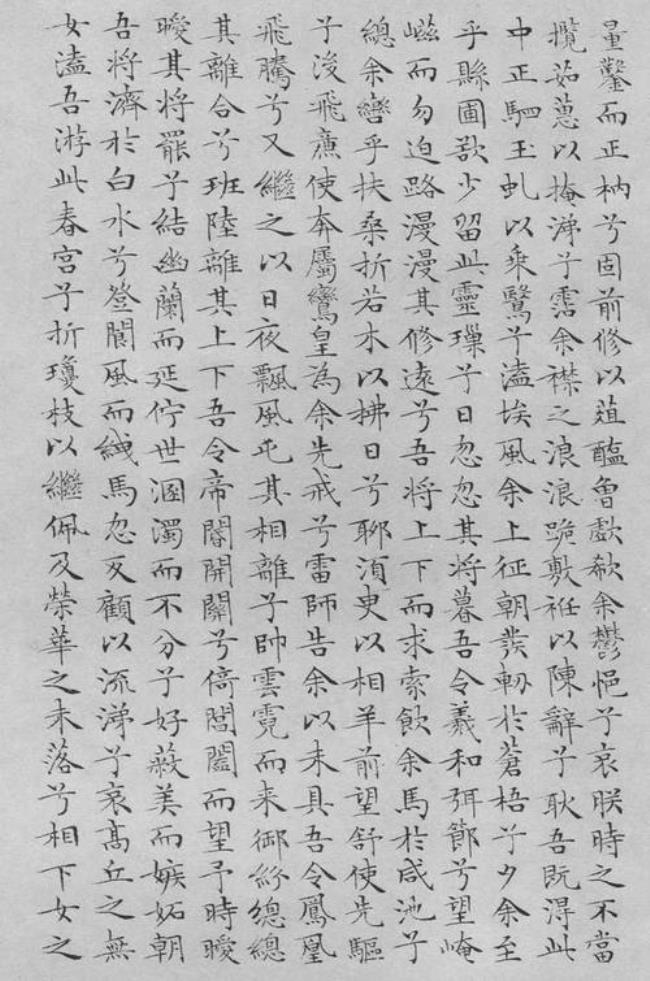 量鑿而正枘兮固前修以葅醢曾歔欷余鬱悒兮哀朕時之不當
攬茹蕙以掩涕兮霑余襟之浪浪跪敷衽以陳辭兮耿吾既得此
中正駟玉虬以乘鷖兮溘埃風余上征朝發軔於蒼梧兮夕余至
乎縣圃欲少留此靈瑣兮日忽忽其將暮吾令羲和弭節兮望崦
嵫而勿迫路漫漫其修遠兮吾將上下而求索飲余馬於咸池兮
總余轡乎扶桑折若木以拂日兮聊須臾以相羊前望舒使先驅
兮後飛廉使奔屬鸞皇為余先戒兮雷師告余以未具吾令鳳凰
飛騰兮又繼之以日夜飄風屯其相離兮帥雲霓而来御紛總總
其離合兮班陸離其上下吾令帝閽開關兮倚閶闔而望予時曖
曖其將罷兮結幽蘭而延佇世溷濁而不分兮好蔽美而嫉妬朝
吾將濟於白水兮登閬風而緤馬忽反顧以流涕兮哀高丘之無
女溘吾游此春宮兮折瓊枝以繼佩及榮華之未落兮相下女之